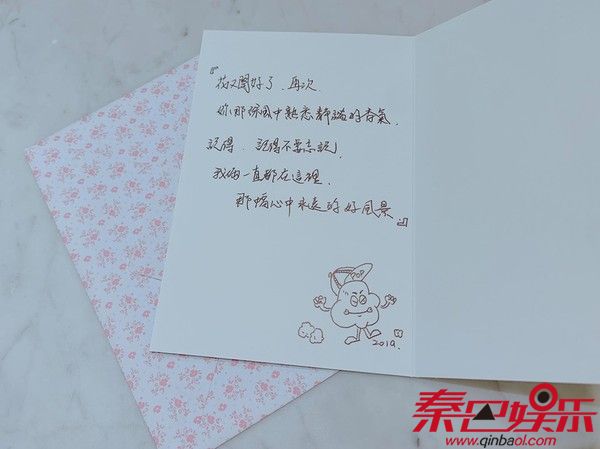 『花又開好了．再次
你那徐風中熟悉靜謐的香氣．
記得．記得不要忘記，
我倆一直都在這裡．
那幅心中永遠的好風景．』
POP
2019.
秦巴娱乐
www.qinbaol.com